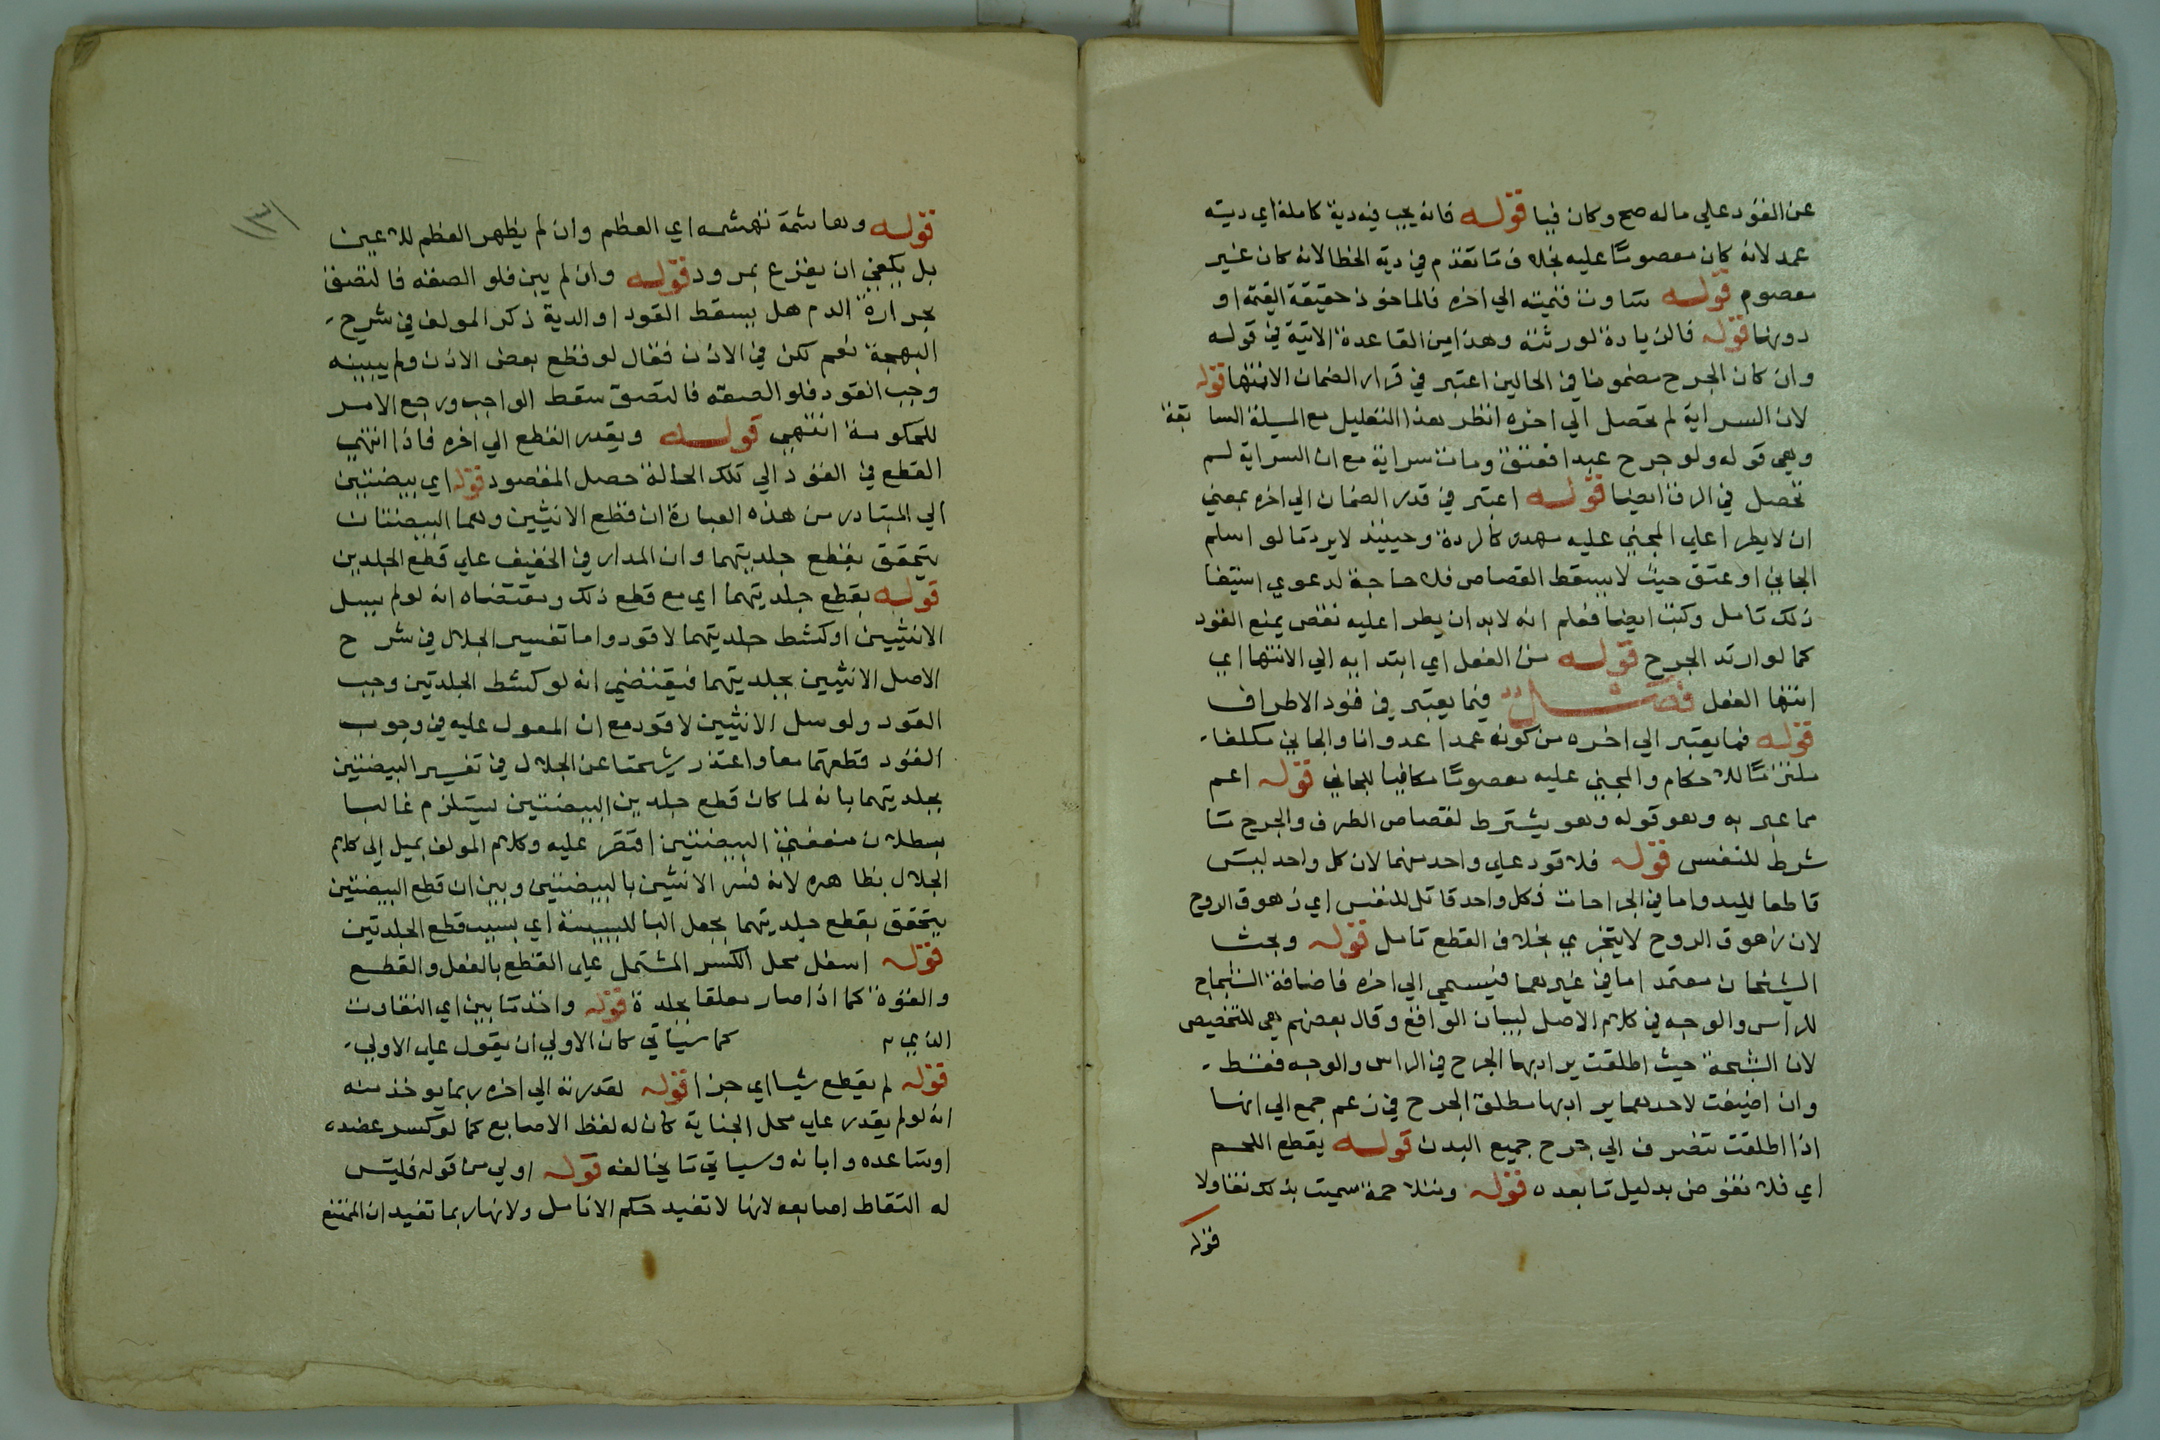 عن القود علي ماله صح وكان فيا قوله فانه يجب فيه دية كاملة اي ديته
عمد لانه كان معصوما عليه بخلاف ما تقدم في دية الخطا لانه كان غير
معصوم قوله ساوت قيمته الي اخره فالماخوذ حقيقة القيمة او
دونها قوله فالزيادة لورثته وهذا من القاعدة الاتية في قوله
وان كان الجرح مضمونا في الحالين اعتبر في قرار الضمان الانتها قوله
لان السراية لم تحصل الي اخره انظر هذا التعليل مع المسيلة السابقة
وهي قوله ولو جرح عبدا فعتق ومات سراية مع ان السراية لم
تحصل في الرق ايضا قوله اعتبر في قدر الضمان الي اخره بمعني
ان لا يطرا علي المجني عليه مهدر كالردة وحينيذ لا يرد ما لو اسلم
الجاني او عتق حيث لا يسقط القصاص فلا حاجة لدعوي استيفا
ذلك تامل وكتب ايضا فعلم انه لا بد ان يطرا عليه نقص يمنع القود
كما لو ارتد الجرح قوله من الفعل اي ابتدايه الي الانتها اي
انتها الفعل فصل فيما يعتبر في قود الاطراف
قوله فيما يعتبر الي اخره من كونه عمدا عدوانا والجاني مكلفا
ملتزما للاحكام والمجني عليه معصوما مكافيا للجاني قوله اعم
مما عبر به وهو قوله وهو يشترط لقصاص الطرف والجرح ما
شرط للنفس قوله فلا قود علي واحد منهما لان كل واحد ليس
قاطعا لليد واما في الجراحات فكل واحد قاتل للنفس اي زهوق الروح
لان زهوق الروح لا يتجزي بخلاف القطع تامل قوله وبحث
الشيخان معتمد اما في غيرهما فيسمي الي اخره فاضافة الشجاج
للراس والوجه في كلام الاصل لبيان الواقع وقال بعضهم هي للتخصيص
لان الشجة حيث اطلقت يراد بها الجرح في الراس والوجه فقط
وان اضيفت لاحدهما يراد بها مطلق الجرح في زعم جمع الي انها
اذا اطلقت تنصرف الي جرح جميع البدن قوله يقطع اللحم
اي فلا تغوص بدليل ما بعده قوله ومتلاحمة سميت بذلك تفاولا
قوله
قوله وهاشمة تهشمه اي العظم وان لم يظهر العظم للاعين
بل يكفي ان يقرع بمرود قوله وان لم يبن فلو الصقه فالتصق
بحرارة الدم هل يسقط القود او الدية ذكر المولف في شرح
البهجة نعم لكن في الاذن فقال لو قطع بعض الاذن ولم يبينه
وجب القود فلو الصقه فالتصق سقط الواجب ورجع الامر
للحكومة انتهي قوله ويقدر القطع الي اخره فاذا انتهي
القطع في القود الي تلك الحالة حصل المقصود قوله اي بيضتين
الي المتبادر من هذه العبارة ان قطع الانثيين وهما البيضتان
يتحقق بقطع جلديتهما وان المدار في الخفيف علي قطع الجلدين
قوله بقطع جلديتهما اي مع قطع ذلك ومقتضاه انه لو لم يسل
الانثيين او كشط جلديتهما لا قود واما تفسير الجلال في شرح
الاصل الانثيين بجلديتهما فيقتضي انه لو كشط الجلدتين وجب
القود ولو سل الانثيين لا قود مع ان المعول عليه في وجوب
القود قطعهما معا واعتذر شيخنا عن الجلال في تفسير البيضتين
بجلديتهما بانه لما كان قطع جلدين البيضتين يستلزم غالبا
بطلان منفعتي البيضتين اقتصر عليه وكلام المولف يميل الي كلام
الجلال بظاهره لانه فسر الانثيين بالبيضتين وبين ان قطع البيضتين
يتحقق بقطع جلديتهما بجعل البا للسببية اي بسبب قطع الجلدتين
قوله اسفل محل الكسر المشتمل علي القطع بالفعل والقطع
والقوة كما اذا صار معلقا بجلدة قوله واخذ ما بين اي التفاوت
الذي كما سياتي كان الاولي ان يقول علي الاولي
قوله لم يقطع شيا اي جزا قوله لقدرته الي اخره ربما يوخذ منه
انه لو لم يقدر علي محل الجناية كان له لفظ الاصابع كما لو كسر عضده
او ساعده وابانه وسياتي ما يخالفه قوله اولي من قوله فليس
له التقاط اصابعه لانها لا تفيد حكم الانامل ولانها ربما تفيد ان الممتنع